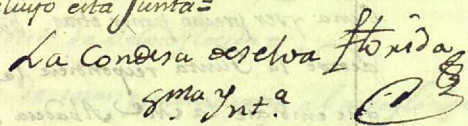 esta Junta=
La Condesa de selva florida
Int.ª